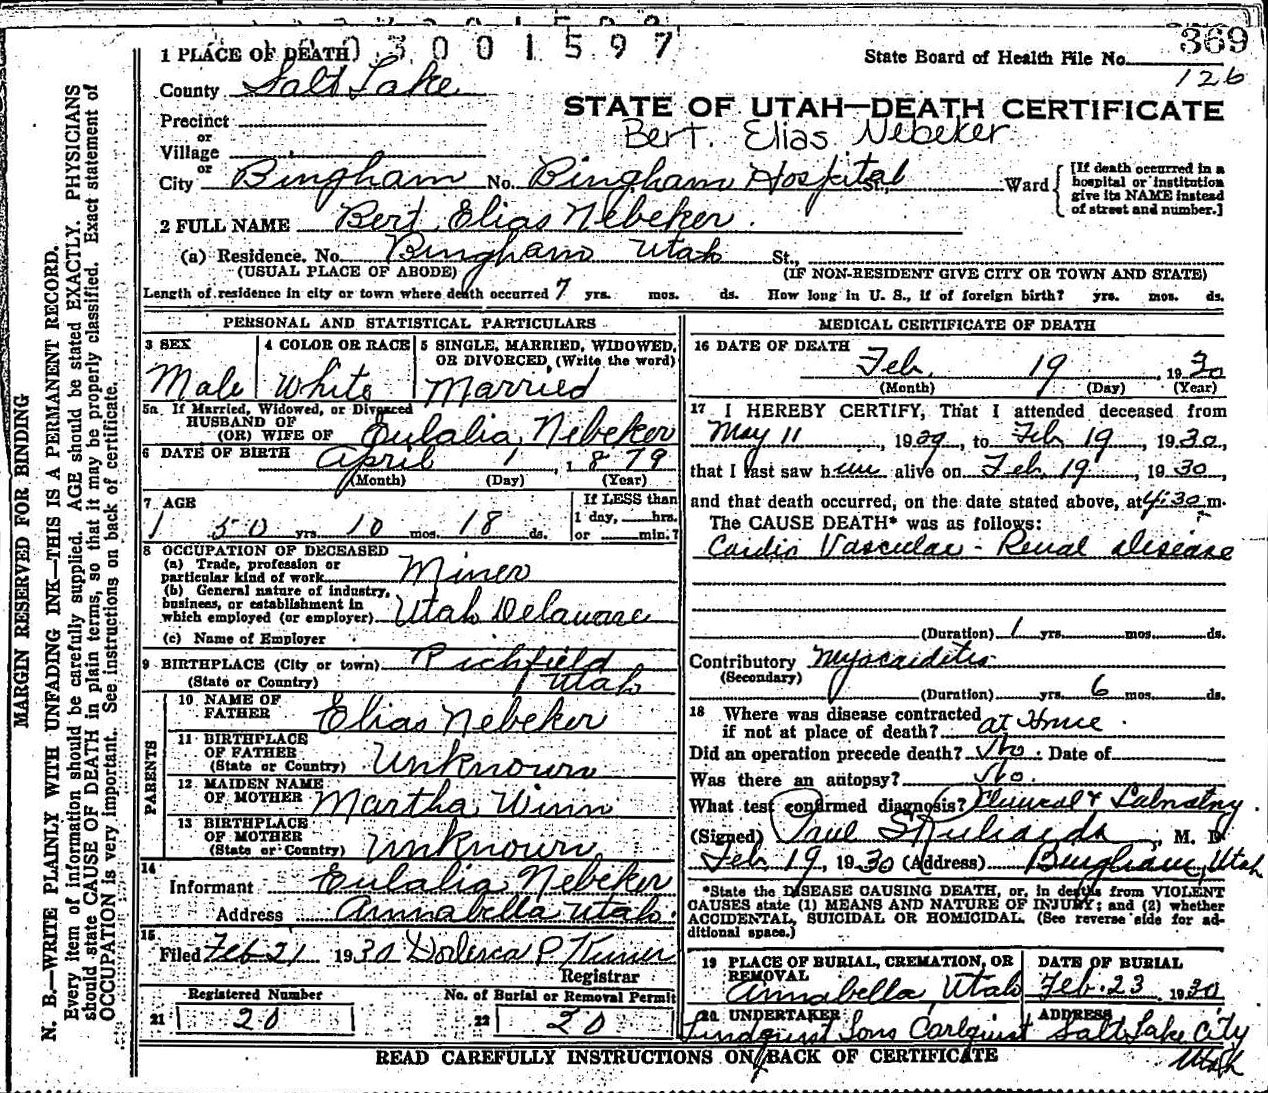 3001597
369
1 PLACE OF DEATH
State Board of Health File No.
126
County Salt Lake
STATE OF UTAH—DEATH CERTIFICATE
Precinct
or
Bert. Elias Nebeker
Village
or
City Bingham No. Bingham Hospital St., Ward
[If death occurred in a
hospital or institution
give its NAME instead
of street and number.]
2 FULL NAME Bert Elias Nebeker.
(a) Residence. No. Bingham Utah St.,
(USUAL PLACE OF ABODE) (IF NON-RESIDENT GIVE CITY OR TOWN AND STATE)
Length of residence in city or town where death occurred 7 yrs. mos. ds. How long in U. S., if of foreign birth? yrs. mos. ds.
PERSONAL AND STATISTICAL PARTICULARS
3 SEX
Male
4 COLOR OR RACE
White
5 SINGLE, MARRIED, WIDOWED,
OR DIVORCED, (Write the word)
Married
5a If Married, Widowed, or Divorced
HUSBAND OF
(OR) WIFE OF Eulalia Nebeker
6 DATE OF BIRTH April 1, 1879
(Month) (Day) (Year)
7 AGE
50 yrs. 10 mos. 18 ds.
If LESS than
1 day, hrs.
or min.?
8 OCCUPATION OF DECEASED
(a) Trade, profession or
particular kind of work Miner
(b) General nature of industry,
business, or establishment in
which employed (or employer) Utah Delaware
(c) Name of Employer
9 BIRTHPLACE (City or town) Richfield
(State or Country) Utah
PARENTS
10 NAME OF
FATHER Elias Nebeker
11 BIRTHPLACE
OF FATHER
(State or Country) Unknown
12 MAIDEN NAME
OF MOTHER Martha Winn
13 BIRTHPLACE
OF MOTHER
(State or Country) Unknown
14
Informant Eulalia Nebeker
Address Annabella Utah.
15
Filed Feb 21 1930
Registrar
Registered Number
21 20
No. of Burial or Removal Permit
22 20
MEDICAL CERTIFICATE OF DEATH
16 DATE OF DEATH
Feb. 19, 1930
(Month) (Day) (Year)
17 I HEREBY CERTIFY, That I attended deceased from
May 11, 1929, to Feb 19, 1930,
that I last saw him alive on Feb. 19, 1930,
and that death occurred, on the date stated above, at 4:30 m.
The CAUSE DEATH* was as follows:
Cardio Vascular - Renal disease
(Duration) 1 yrs. mos. ds.
Contributory Myocarditis
(Secondary)
(Duration) yrs. 6 mos. ds.
18 Where was disease contracted
if not at place of death? at Home.
Did an operation precede death? No. Date of
Was there an autopsy? No.
What test confirmed diagnosis? Clinical & Labratory.
(Signed) Paul S Richards, M. D.
Feb. 19, 1930 (Address) Bingham, Utah
*State the DISEASE CAUSING DEATH, or, in deaths from VIOLENT
CAUSES state (1) MEANS AND NATURE OF INJURY; and (2) whether
ACCIDENTAL, SUICIDAL OR HOMICIDAL. (See reverse side for ad-
ditional space.)
19 PLACE OF BURIAL, CREMATION, OR
REMOVAL
Annabella Utah
DATE OF BURIAL
Feb. 23 1930
20 UNDERTAKER
Lindquist Sons Carlquist
ADDRESS
Salt Lake City
Utah
READ CAREFULLY INSTRUCTIONS ON BACK OF CERTIFICATE
MARGIN RESERVED FOR BINDING
N. B.—WRITE PLAINLY WITH UNFADING INK—THIS IS A PERMANENT RECORD.
Every item of information should be carefully supplied. AGE should be stated EXACTLY. PHYSICIANS
should state CAUSE OF DEATH in plain terms, so that it may be properly classified. Exact statement of
OCCUPATION is very important. See instructions on back of certificate.